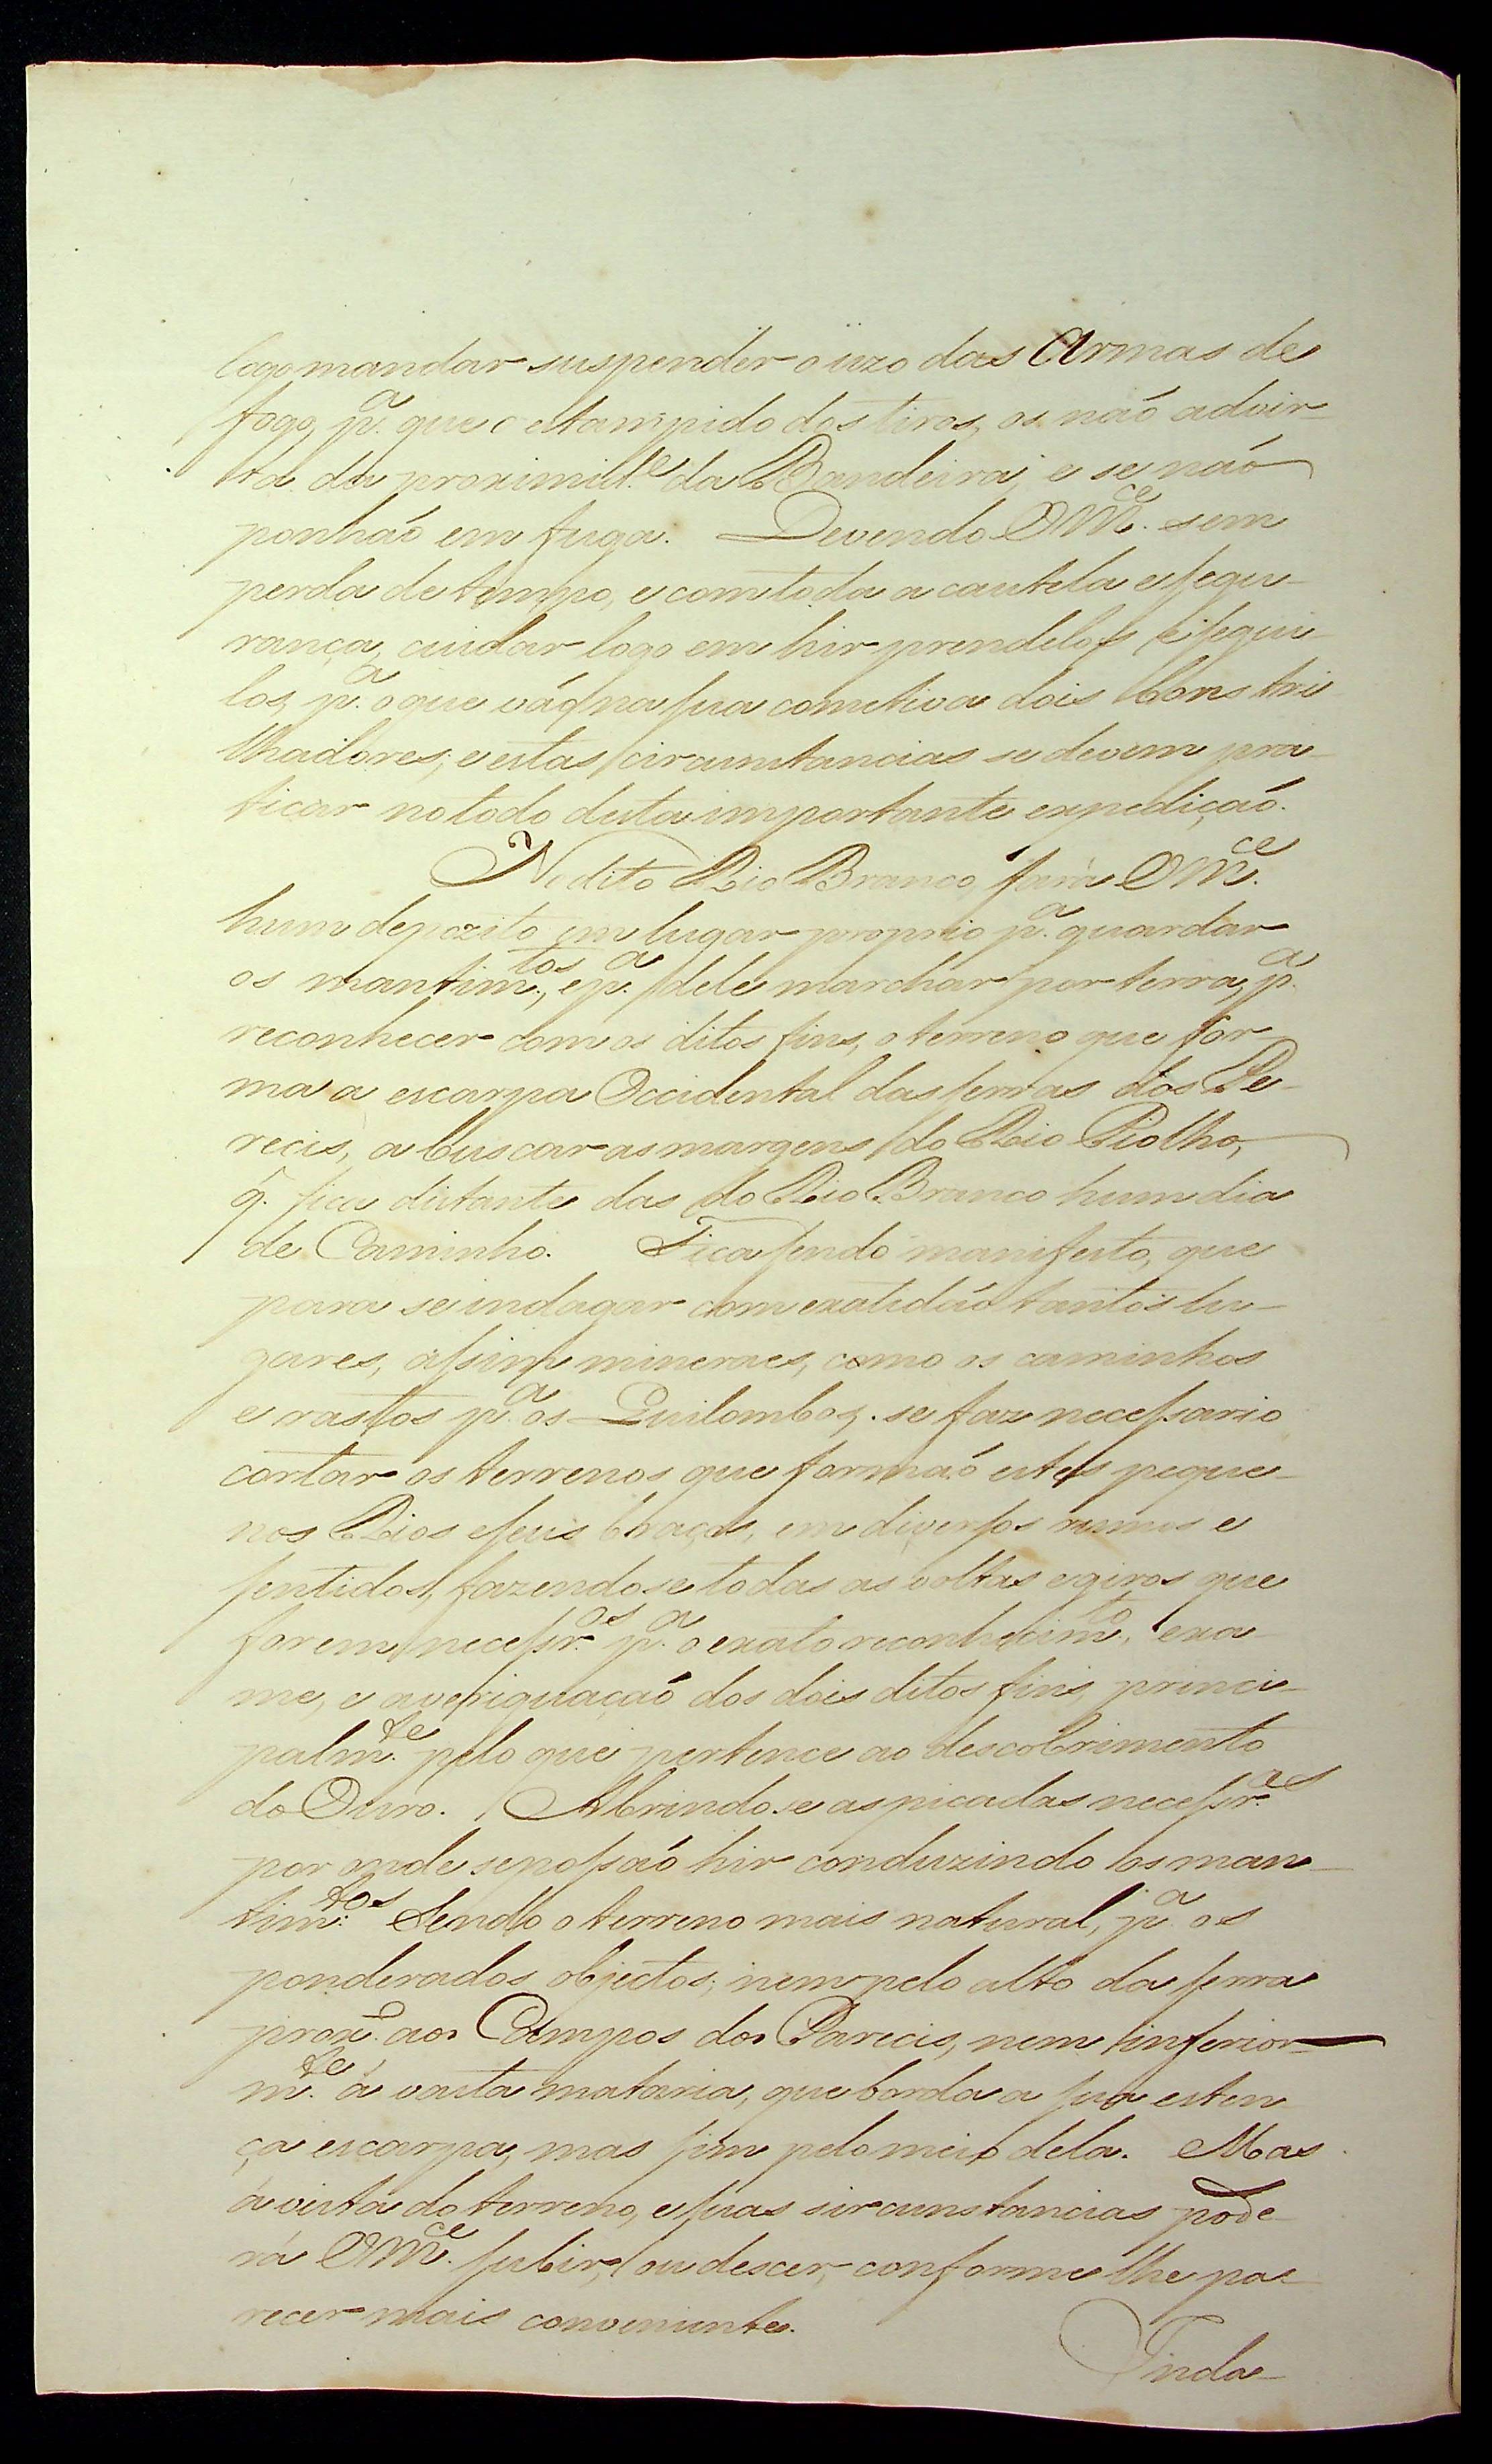 logo mandar suspender o uzo das Armas de
fogo, p.ª que o estampido dos tiros, os naõ advir-
ta da proximid.e da Bandeira, e se naõ
ponhaõ em fuga. Devendo VM.ce sem
perda de tempo, e com toda a cautela e segu-
rança, cuidar logo em hir prendelos e segui-
los, p.ª o que vaõ na sua cometiva dois bons tri
lhadores; e estas circumstancias se devem pra-
ticar no todo desta importante expediçaõ.
No dito Rio Branco, fará VM.ce
hum depozito em lugar proprio p.ª guardar
os mantim.tos, e p.ª dele marchar por terra, p.ª
reconhecer com os ditos fins, o terreno que for-
ma a escarpa Occidental das serras dos Pe-
recis, a buscar as margens do Rio Piolho,
q̃. fica distante das do Rio Branco hum dia
de Caminho. Fica sendo manifesto, que
para se indagar com exatidaõ tantos lu-
gares, assim mineraes, como os caminhos
e rastos p.ª os Quilombos, se faz necessario
cortar os terrenos que formaõ estes peque-
nos Rios e seus braços, em diversos rumos e
sentidos, fazendose todas as voltas e giros que
forem necessr.os p.ª o exato reconhecim.to, exa-
me, e averiguaçaõ dos dois ditos fins, princi-
palm.te pelo que pertence ao descobrimento
do Ouro. Abrindo se as picadas necessr.as
por onde se possaõ hir conduzindo os man-
tim.tos Sendo o terreno mais natural, p.ª os
ponderados objectos; nem pelo alto da serra
prox.º aos Campos dos Parecis, nem inferior-
m.te á vasta mataria, que borda a sua esten
ça escarpa, mas sim pelo meio dela. Mas
á vista do terreno, e suas sircunstancias pode-
rá VM.ce subir, ou descer, conforme lhe pa-
recer mais conveniente.
Inda